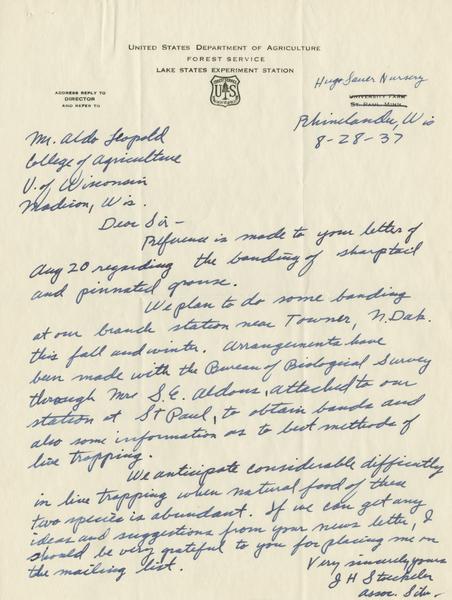 UNITED STATES DEPARTMENT OF AGRICULTURE
FOREST SERVICE
LAKE STATES EXPERIMENT STATION
ADDRESS REPLY TO
DIRECTOR
AND REFER TO
FOREST SERVICE
U S
Hugo Sauer Nursery
UNIVERSITY FARM
ST. PAUL, MINN.
Rhinelander, Wis
8-28-37
Mr. Aldo Leopold
College of Agriculture
U. of Wisconsin
Madison, Wis.
Dear Sir -
Reference is made to your letter of
Aug 20 regarding the banding of sharptail
and pinnated grouse.
We plan to do some banding
at our branch station near Towner, N. Dak.
this fall and winter. Arrangements have
been made with the Bureau of Biological Survey
through Mr S. E. Aldous, attached to our
station at St Paul, to obtain bands and
also some information as to best methods of
live trapping.
We anticipate considerable difficulty
in live trapping when natural food of these
two species is abundant. If we can get any
ideas and suggestions from your news letter, I
should be very grateful to you for placing me on
the mailing list.
Very sincerely yours
J H Stoeckeler
Assoc. Silv-